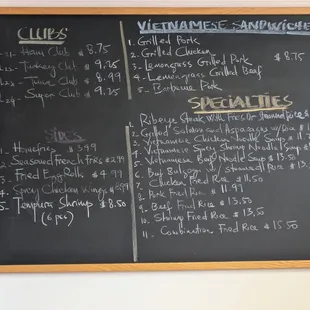 CLUBS
21- Ham Club $ 8.75
22- Turkey Club $ 9.25
23- Tuna Club $ 8.99
24- Super Club $ 9.25
SIDES
1- Homefries $3.99
2- Seasoned French Fries $2.99
3- Fried Egg Rolls $4.99
4- Spicy Chicken Wings
5- Tempura Shrimp $8.50
(6 pcs)
VIETNAMESE SANDWICHES
1- Grilled Pork
2- Grilled Chicken
3- Lemongrass Grilled Pork $8.75
4- Lemongrass Grilled Beef
5- Barbecue Pork
SPECIALTIES
1- Ribeye Steak With Fries Or Steamed Rice $
2- Grilled Salmon and Asparagus w/ Rice
3- Vietnamese Chicken Noodle Soup $
4- Vietnamese Spicy Shrimp Noodle Soup $
5- Vietnamese Beef Noodle Soup $13.50
6- Beef Bulgogi w/ Steamed Rice
7- Chicken Fried Rice $11.50
8- Pork Fried Rice $11.99
9- Beef Fried Rice $13.50
10- Shrimp Fried Rice $13.50
11- Combination Fried Rice $15.50